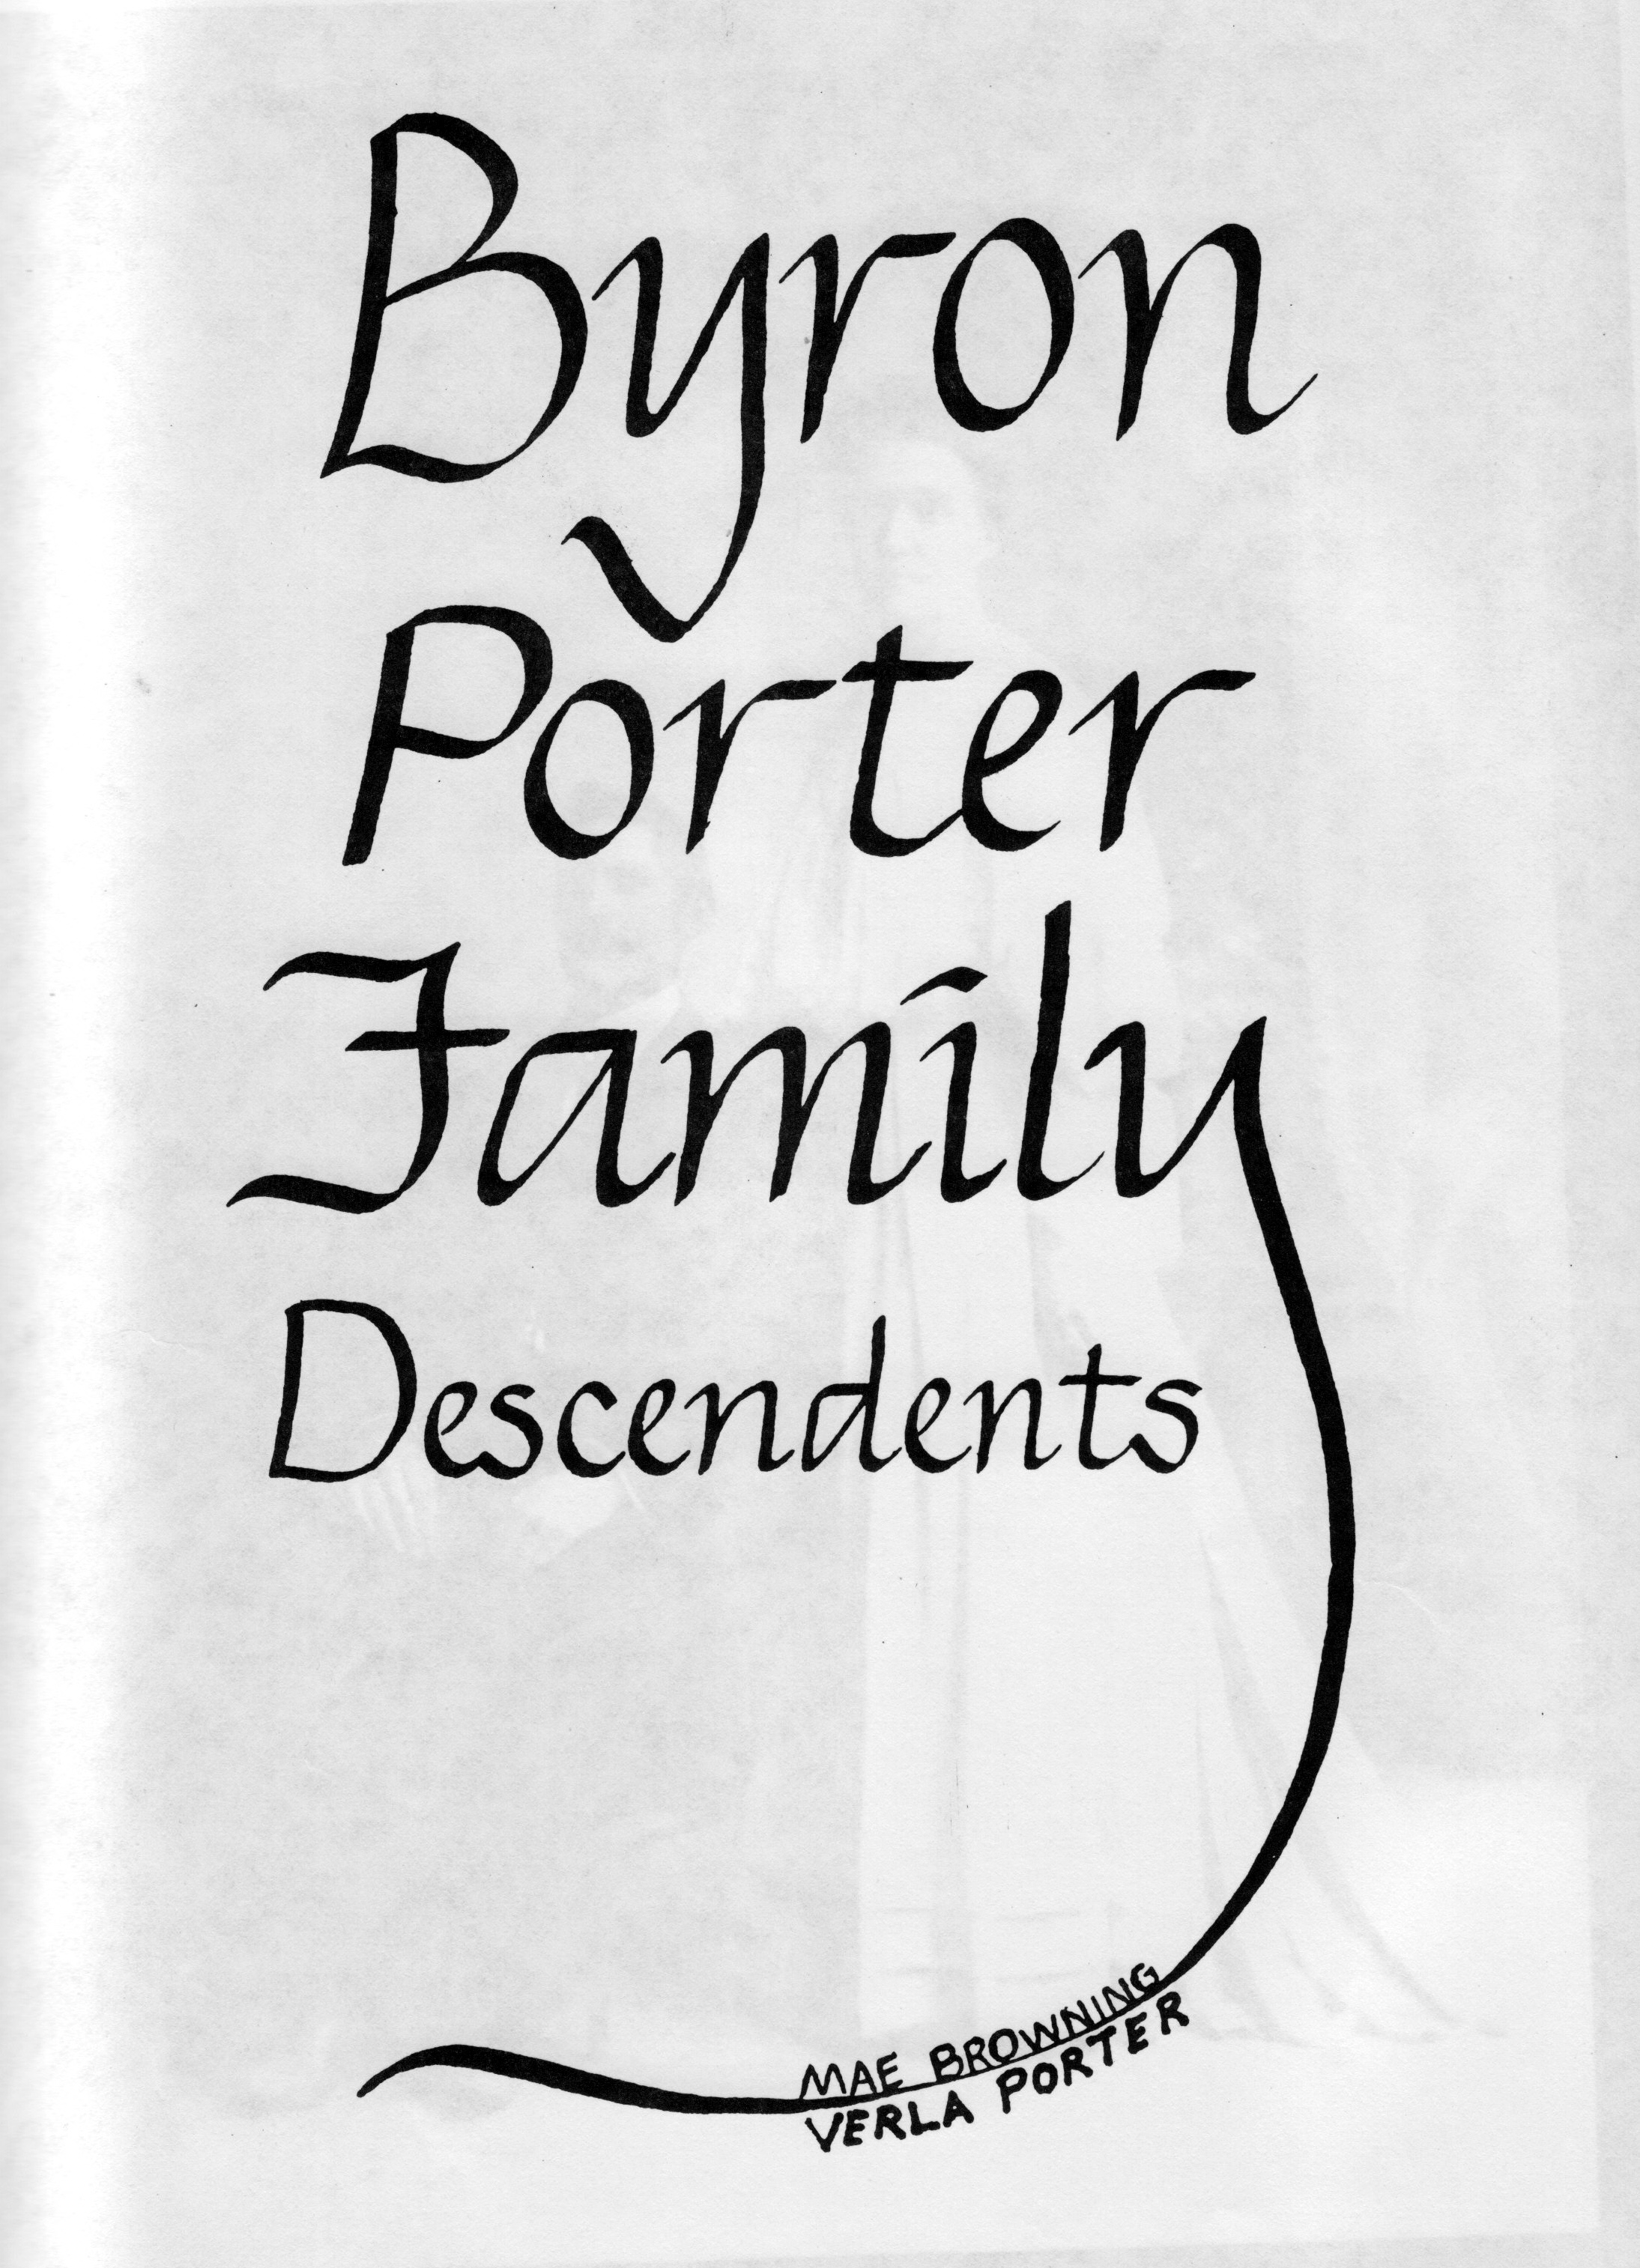 Byron
Porter
Family
Descendents
MAE BROWNING
VERLA PORTER